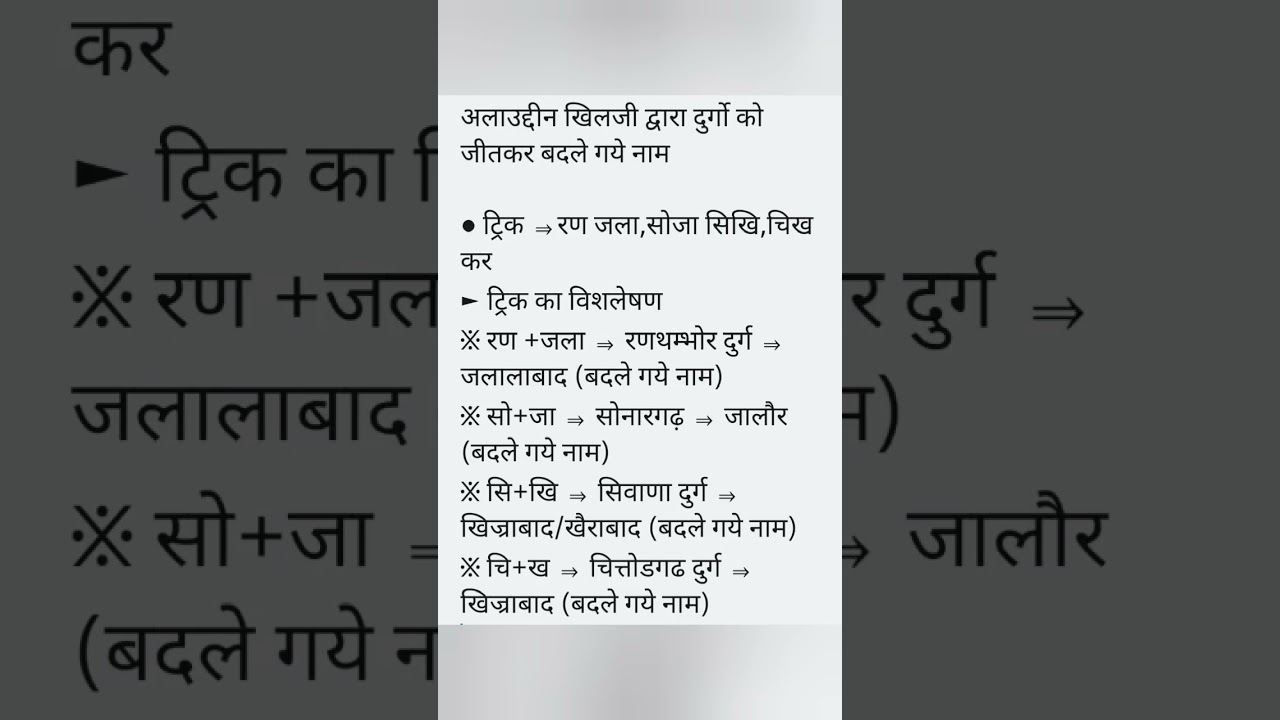 अलाउद्दीन खिलजी द्वारा दुर्गो को
जीतकर बदले गये नाम
● ट्रिक ⇒ रण जला,सोजा सिखि,चिख
कर
► ट्रिक का विशलेषण
※ रण +जला ⇒ रणथम्भोर दुर्ग ⇒
जलालाबाद (बदले गये नाम)
※ सो+जा ⇒ सोनारगढ़ ⇒ जालौर
(बदले गये नाम)
※ सि+खि ⇒ सिवाणा दुर्ग ⇒
खिज्राबाद/खैराबाद (बदले गये नाम)
※ चि+ख ⇒ चित्तोडगढ दुर्ग ⇒
खिज्राबाद (बदले गये नाम)
कर
► ट्रिक का
※ रण +जल
र दुर्ग ⇒
जलालाबाद
※ सो+जा
⇒ जालौर
(बदले गये न